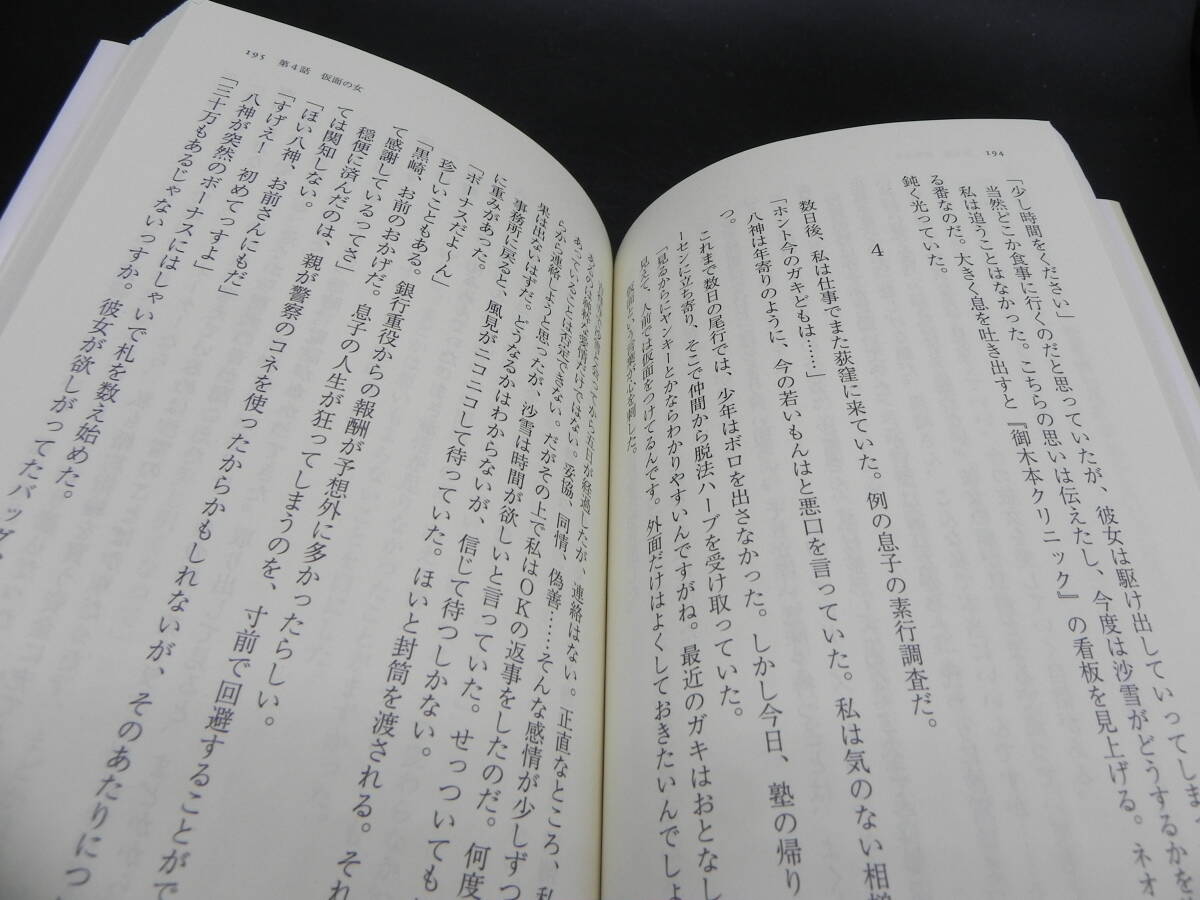 194
「少し時間をください」
当然どこか食事に行くのだと思っていたが、彼女は駆け出していってしま
私は追うことはなかった。こちらの思いは伝えたし、今度は沙雪がどうするかを
る番なのだ。大きく息を吐き出すと『御木本クリニック』の看板を見上げる。ネオ
鈍く光っていた。
4
数日後、私は仕事でまた荻窪に来ていた。例の息子の素行調査だ。
「ホント今のガキどもは……」
八神は年寄りのように、今の若いもんはと悪口を言っていた。私は気のない相槌
つ。
これまで数日の尾行では、少年はボロを出さなかった。しかし今日、塾の帰り
ーセンに立ち寄り、そこで仲間から脱法ハーブを受け取っていた。
「見るからにヤンキーとかならわかりやすいんですがね。最近のガキはおとなし
見えて、人前では仮面をつけてるんです。外面だけはよくしておきたいんでしょ
仮面という言葉が心を刺した。
195 第4話 仮面の女
から五日が経過したが、連絡はない。正直なところ、私
あるのは純粋な愛情だけではない。妥協、同情、偽善……そんな感情が少しずつ
あっていることは否定できない。だがその上で私はOKの返事をしたのだ。何度
らから連絡しようと思ったが、沙雪は時間が欲しいと言っていた。せっついても
果は出ないはずだ。どうなるかはわからないが、信じて待つしかない。
事務所に戻ると、風見がニコニコして待っていた。ほいと封筒を渡される。それ
に重みがあった。
「ボーナスだよ～ん」
珍しいこともある。銀行重役からの報酬が予想外に多かったらしい。
「黒崎、お前のおかげだ。息子の人生が狂ってしまうのを、寸前で回避することがで
て感謝しているってさ」
穏便に済んだのは、親が警察のコネを使ったからかもしれないが、そのあたりにつ
ては関知しない。
「ほい八神、お前さんにもだ」
「すげえー 初めてっすよ」
八神が突然のボーナスにはしゃいで札を数え始めた。
「三十万もあるじゃないっすか。彼女が欲しがってたバッグ、